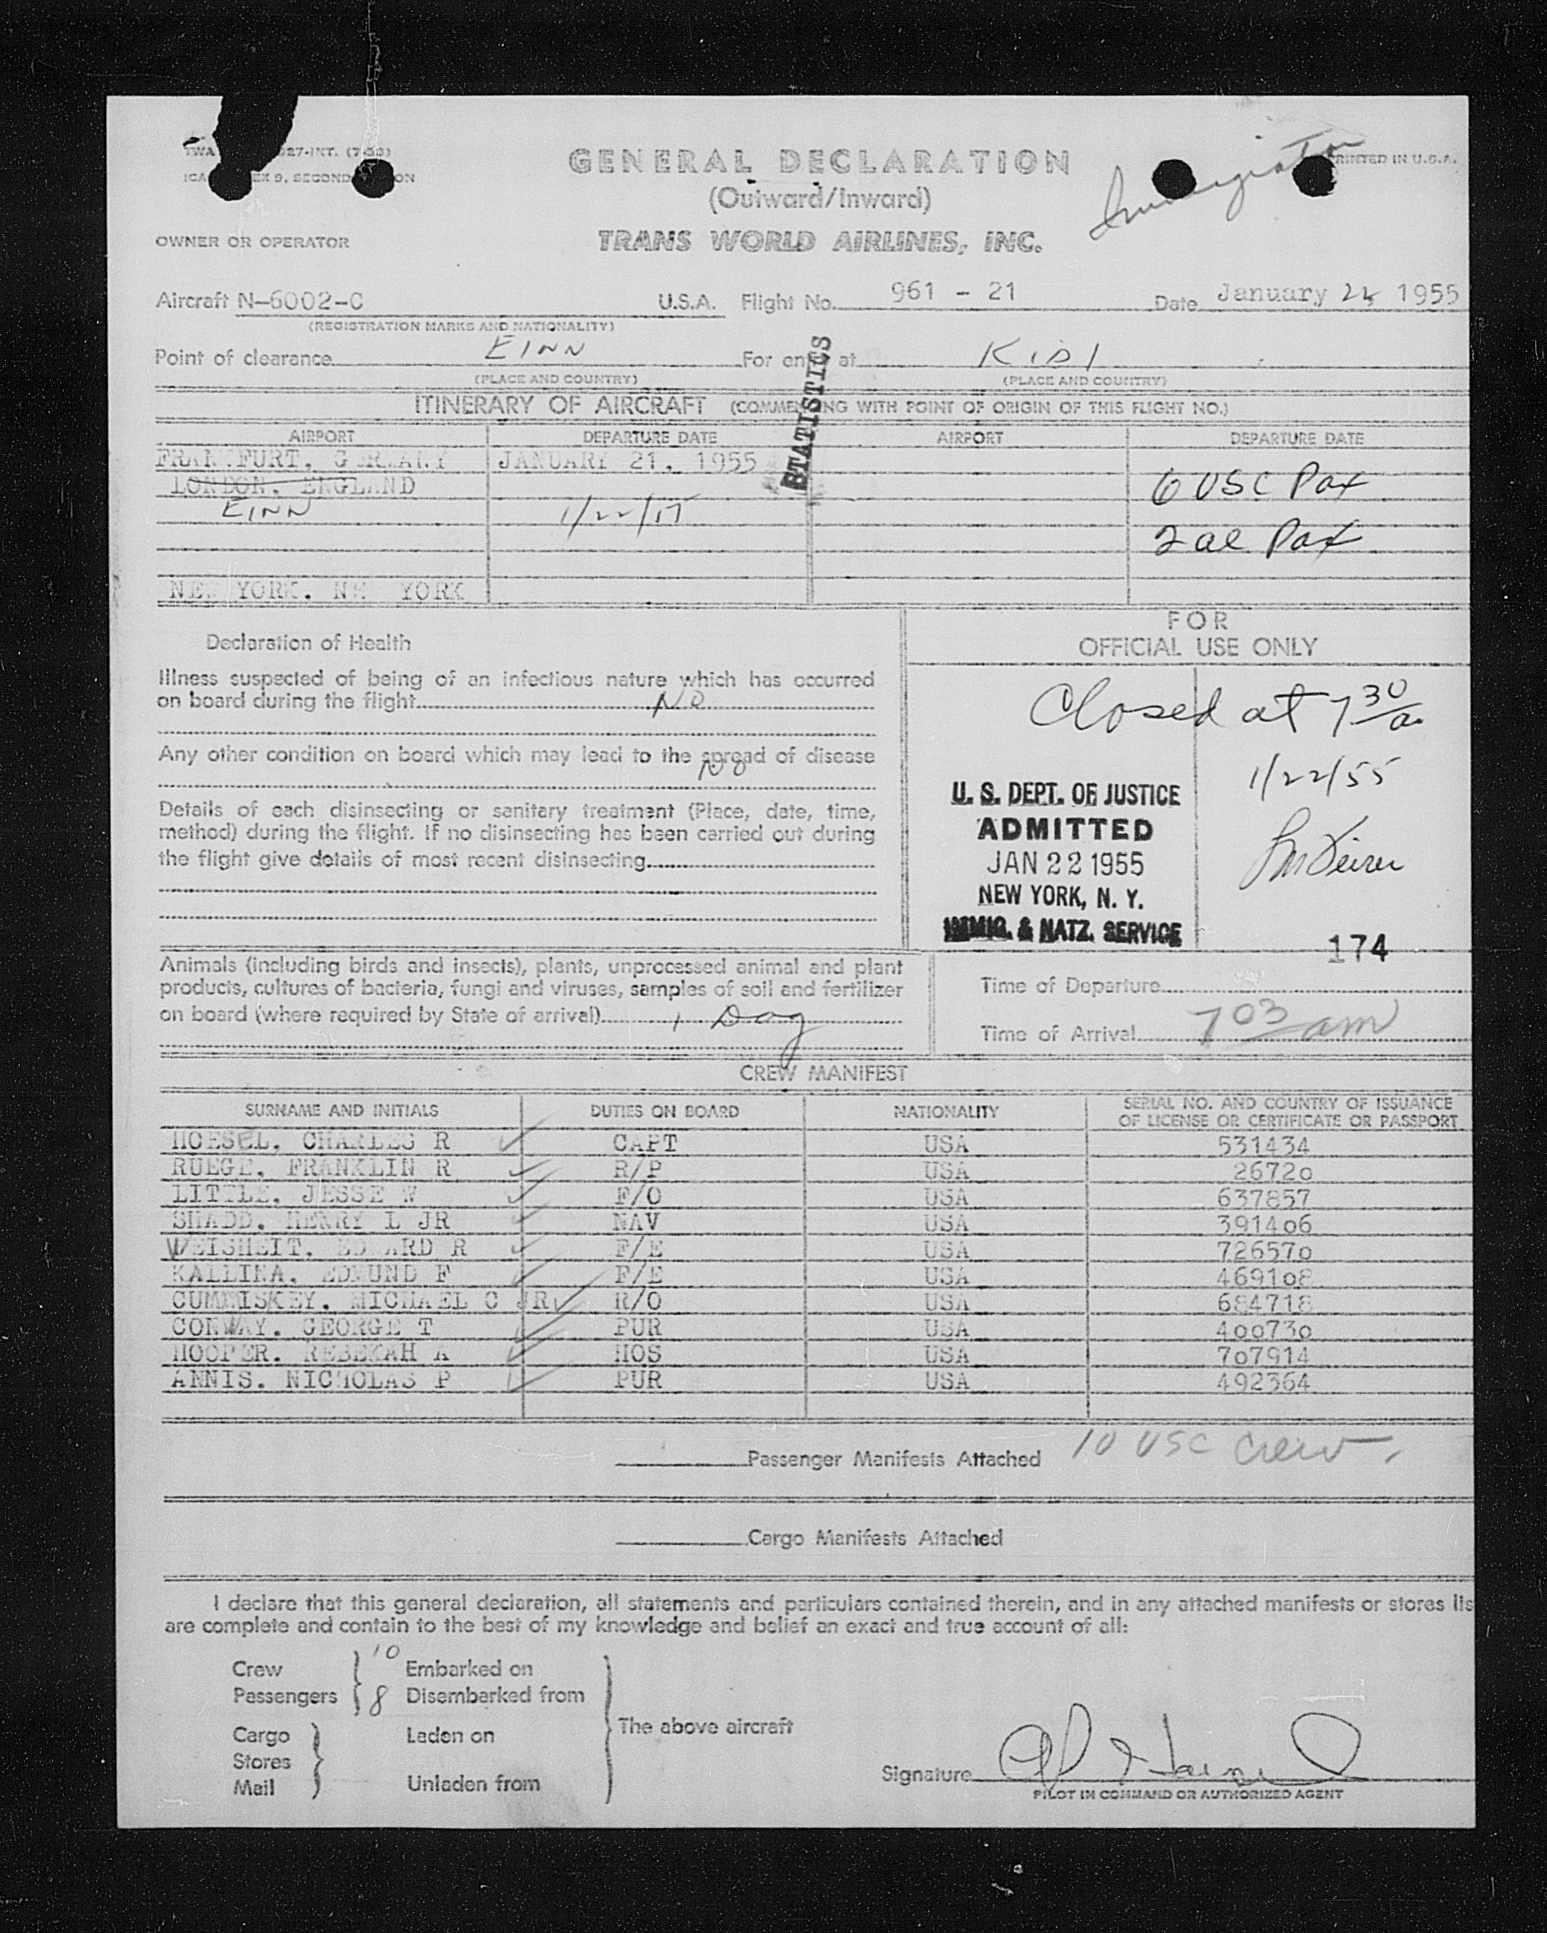 TWA 27-INT.
PRINTED IN U.S.A.
GENERAL DECLARATION
(Outward/Inward)
OWNER OR OPERATOR
TRANS WORLD AIRLINES, INC.
Aircraft N-6002-C U.S.A. Flight No. 961 - 21 Date January 22, 1955
(REGISTRATION MARKS AND NATIONALITY)
Point of clearance EINN For entry at KIDL
(PLACE AND COUNTRY) (PLACE AND COUNTRY)
STATISTICS
ITINERARY OF AIRCRAFT (COMMENCING WITH POINT OF ORIGIN OF THIS FLIGHT NO.)
AIRPORT DEPARTURE DATE AIRPORT DEPARTURE DATE
FRANKFURT, GERMANY JANUARY 21, 1955
LONDON, ENGLAND 6 USC Pax
EINN 1/22/55
2 al Pax
NEW YORK, NEW YORK
Declaration of Health
Illness suspected of being of an infectious nature which has occurred
on board during the flight No
Any other condition on board which may lead to the spread of disease
No
Details of each disinsecting or sanitary treatment (Place, date, time,
method) during the flight. If no disinsecting has been carried out during
the flight give details of most recent disinsecting
FOR
OFFICIAL USE ONLY
Closed at 7 30 a.
1/22/55
U. S. DEPT. OF JUSTICE
ADMITTED
JAN 22 1955
NEW YORK, N. Y.
IMMIG. & NATZ. SERVICE
174
Animals (including birds and insects), plants, unprocessed animal and plant
products, cultures of bacteria, fungi and viruses, samples of soil and fertilizer
on board (where required by State of arrival) 1 Dog
Time of Departure
Time of Arrival 7 03 am
CREW MANIFEST
SURNAME AND INITIALS DUTIES ON BOARD NATIONALITY SERIAL NO. AND COUNTRY OF ISSUANCE
OF LICENSE OR CERTIFICATE OR PASSPORT
HOESEL, CHARLES R CAPT USA 531434
RUEGE, FRANKLIN R R/P USA 26720
LITTLE, JESSE W F/O USA 637857
SHADD, HENRY L JR NAV USA 391406
WEISHEIT, EDWARD R F/E USA 726570
KALLINA, EDMUND F F/E USA 469108
CUMMISKEY, MICHAEL C JR R/O USA 684718
CONWAY, GEORGE T PUR USA 400730
HOOPER, REBEKAH A HOS USA 707914
ANNIS, NICHOLAS P PUR USA 492364
Passenger Manifests Attached 10 USC Crew
Cargo Manifests Attached
I declare that this general declaration, all statements and particulars contained therein, and in any attached manifests or stores lis
are complete and contain to the best of my knowledge and belief an exact and true account of all:
Crew 10 Embarked on
Passengers 8 Disembarked from
Cargo Laden on
The above aircraft
Stores
Mail Unladen from
Signature
PILOT IN COMMAND OR AUTHORIZED AGENT